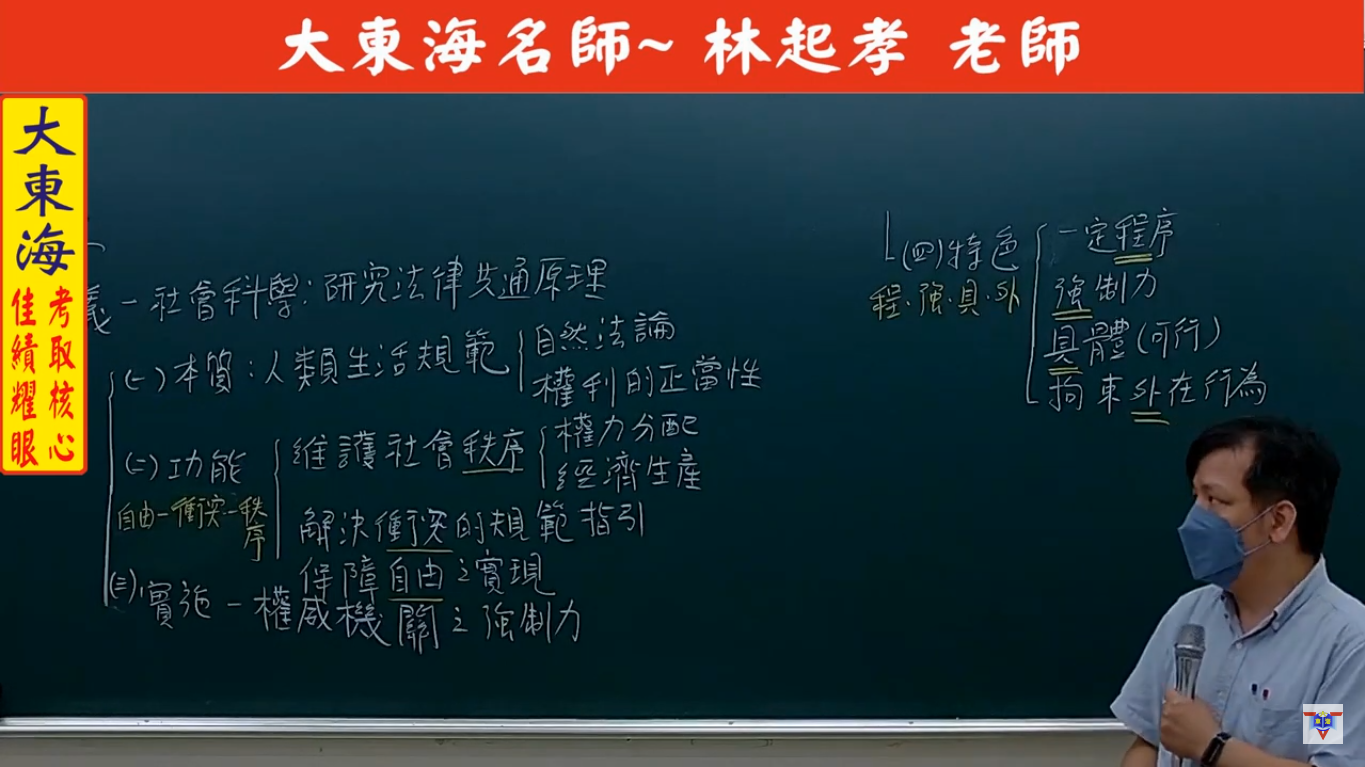 大東海名師~ 林起孝 老師
大東海
考取核心
佳績耀眼
義－社會科學：研究法律共通原理
(一)本質：人類生活規範
自然法論
權利的正當性
(二)功能
自由－衝突－秩序
維護社會秩序
權力分配
經濟生產
解決衝突的規範指引
保障自由之實現
(三)實施－權威機關之強制力
(四)特色
程．強．具．外
一定程序
強制力
具體(可行)
拘束外在行為